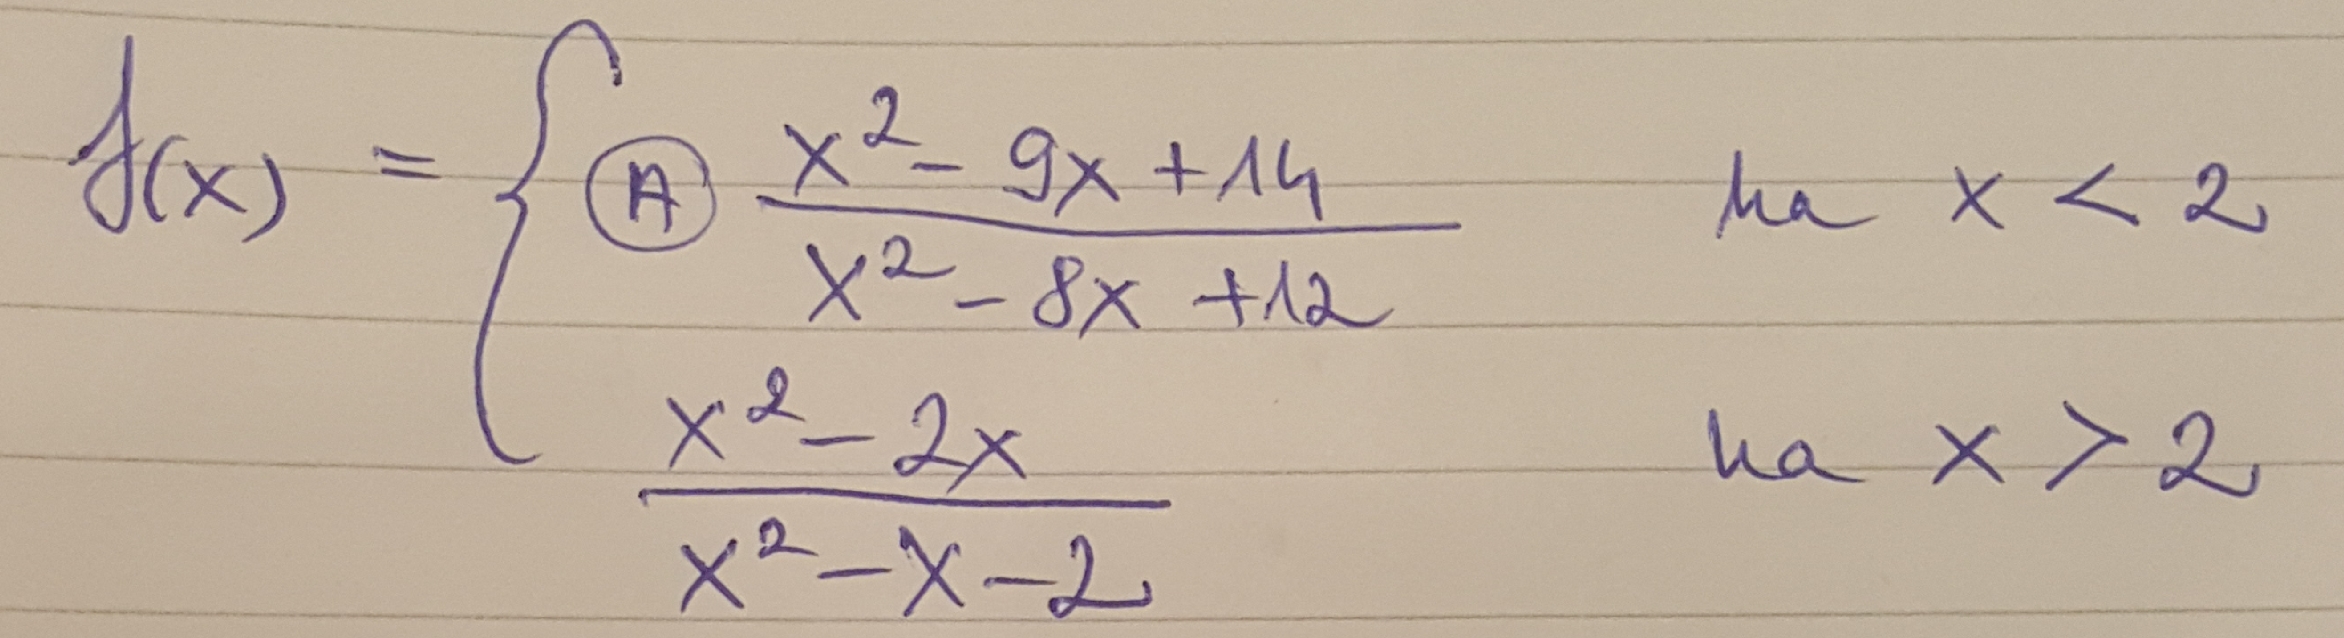 f(x) = { Ⓐ x² - 9x + 14 / x² - 8x + 12 ha x < 2
x² - 2x / x² - x - 2 ha x > 2